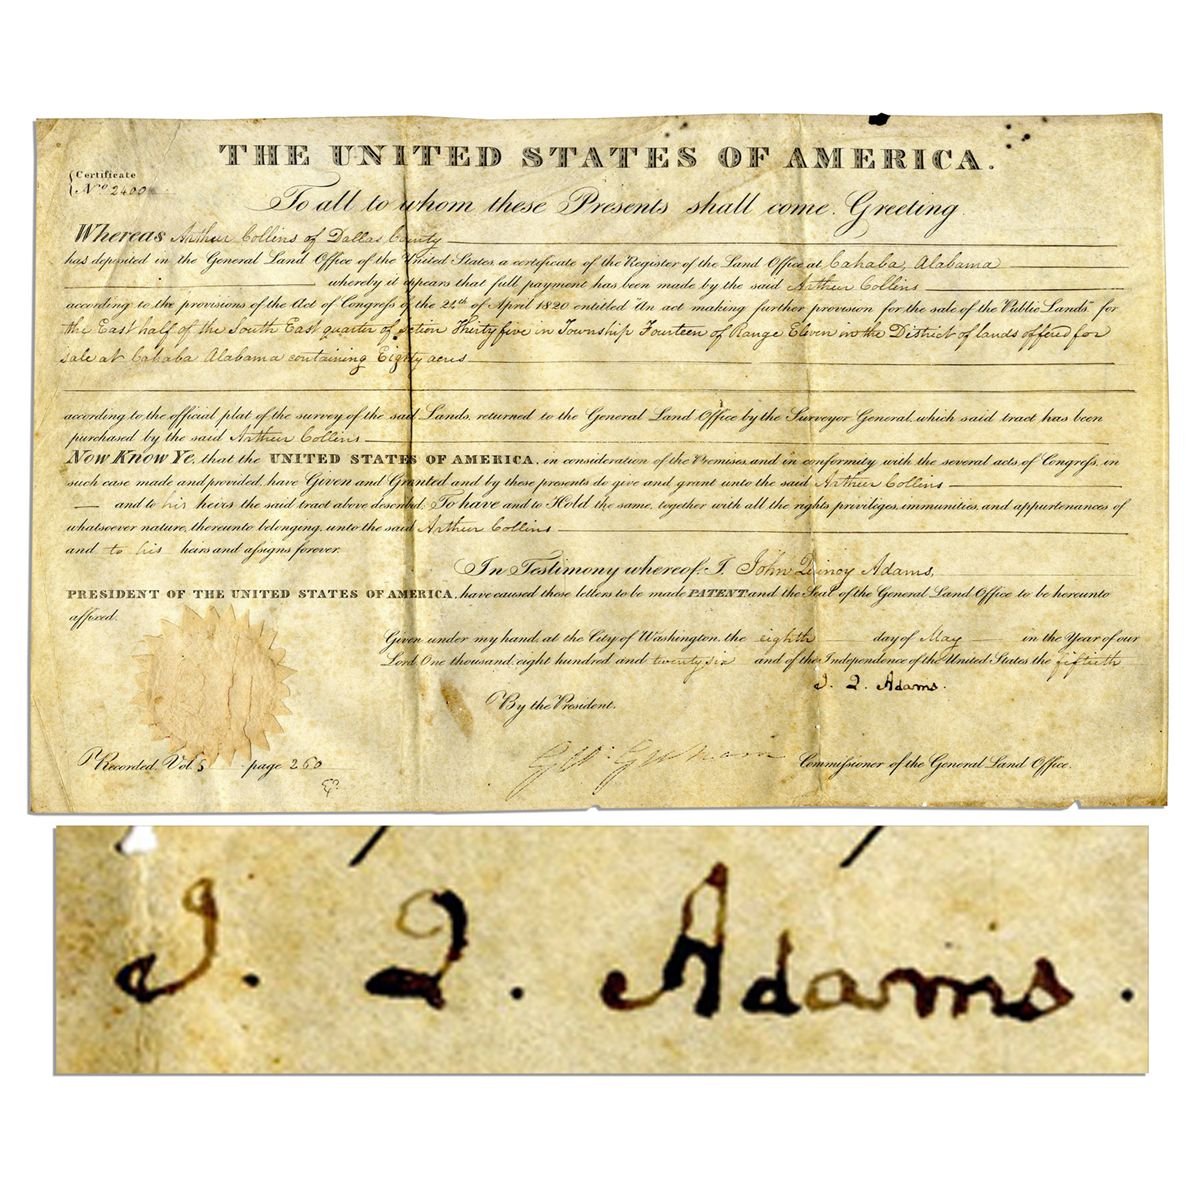 THE UNITED STATES OF AMERICA.
Certificate
No 2400
To all to whom these Presents shall come. Greeting
Whereas Arthur Collins of Dallas County
has deposited in the General Land Office of the United States, a certificate of the Register of the Land Office at Cahaba, Alabama
whereby it appears that full payment has been made by the said Arthur Collins
according to the provisions of the Act of Congress of the 24th of April 1820 entitled "An act making further provision for the sale of the Public Lands" for
the East half of the South East quarter of section Thirty five in Township Fourteen of Range Eleven in the District of lands offered for
sale at Cahaba Alabama containing Eighty acres
according to the official plat of the survey of the said Lands, returned to the General Land Office by the Surveyor General, which said tract has been
purchased by the said Arthur Collins
Now Know Ye, that the UNITED STATES OF AMERICA, in consideration of the Premises, and in conformity with the several acts of Congress, in
such case made and provided, have Given and Granted and by these presents do give and grant unto the said Arthur Collins
and to his heirs the said tract above described; To have and to Hold the same, together with all the rights privileges, immunities, and appurtenances of
whatsoever nature, thereunto belonging, unto the said Arthur Collins
and to his heirs and assigns forever.
In Testimony whereof, I, John Quincy Adams,
PRESIDENT OF THE UNITED STATES OF AMERICA, have caused these letters to be made PATENT and the Seal of the General Land Office to be hereunto
affixed.
Given under my hand, at the City of Washington, the eighth day of May in the Year of our
Lord One thousand, eight hundred and twenty six and of the Independence of the United States the fiftieth
J. Q. Adams.
By the President.
Geo: Graham Commissioner of the General Land Office.
Recorded, Vol 5 page 260
J. Q. Adams.